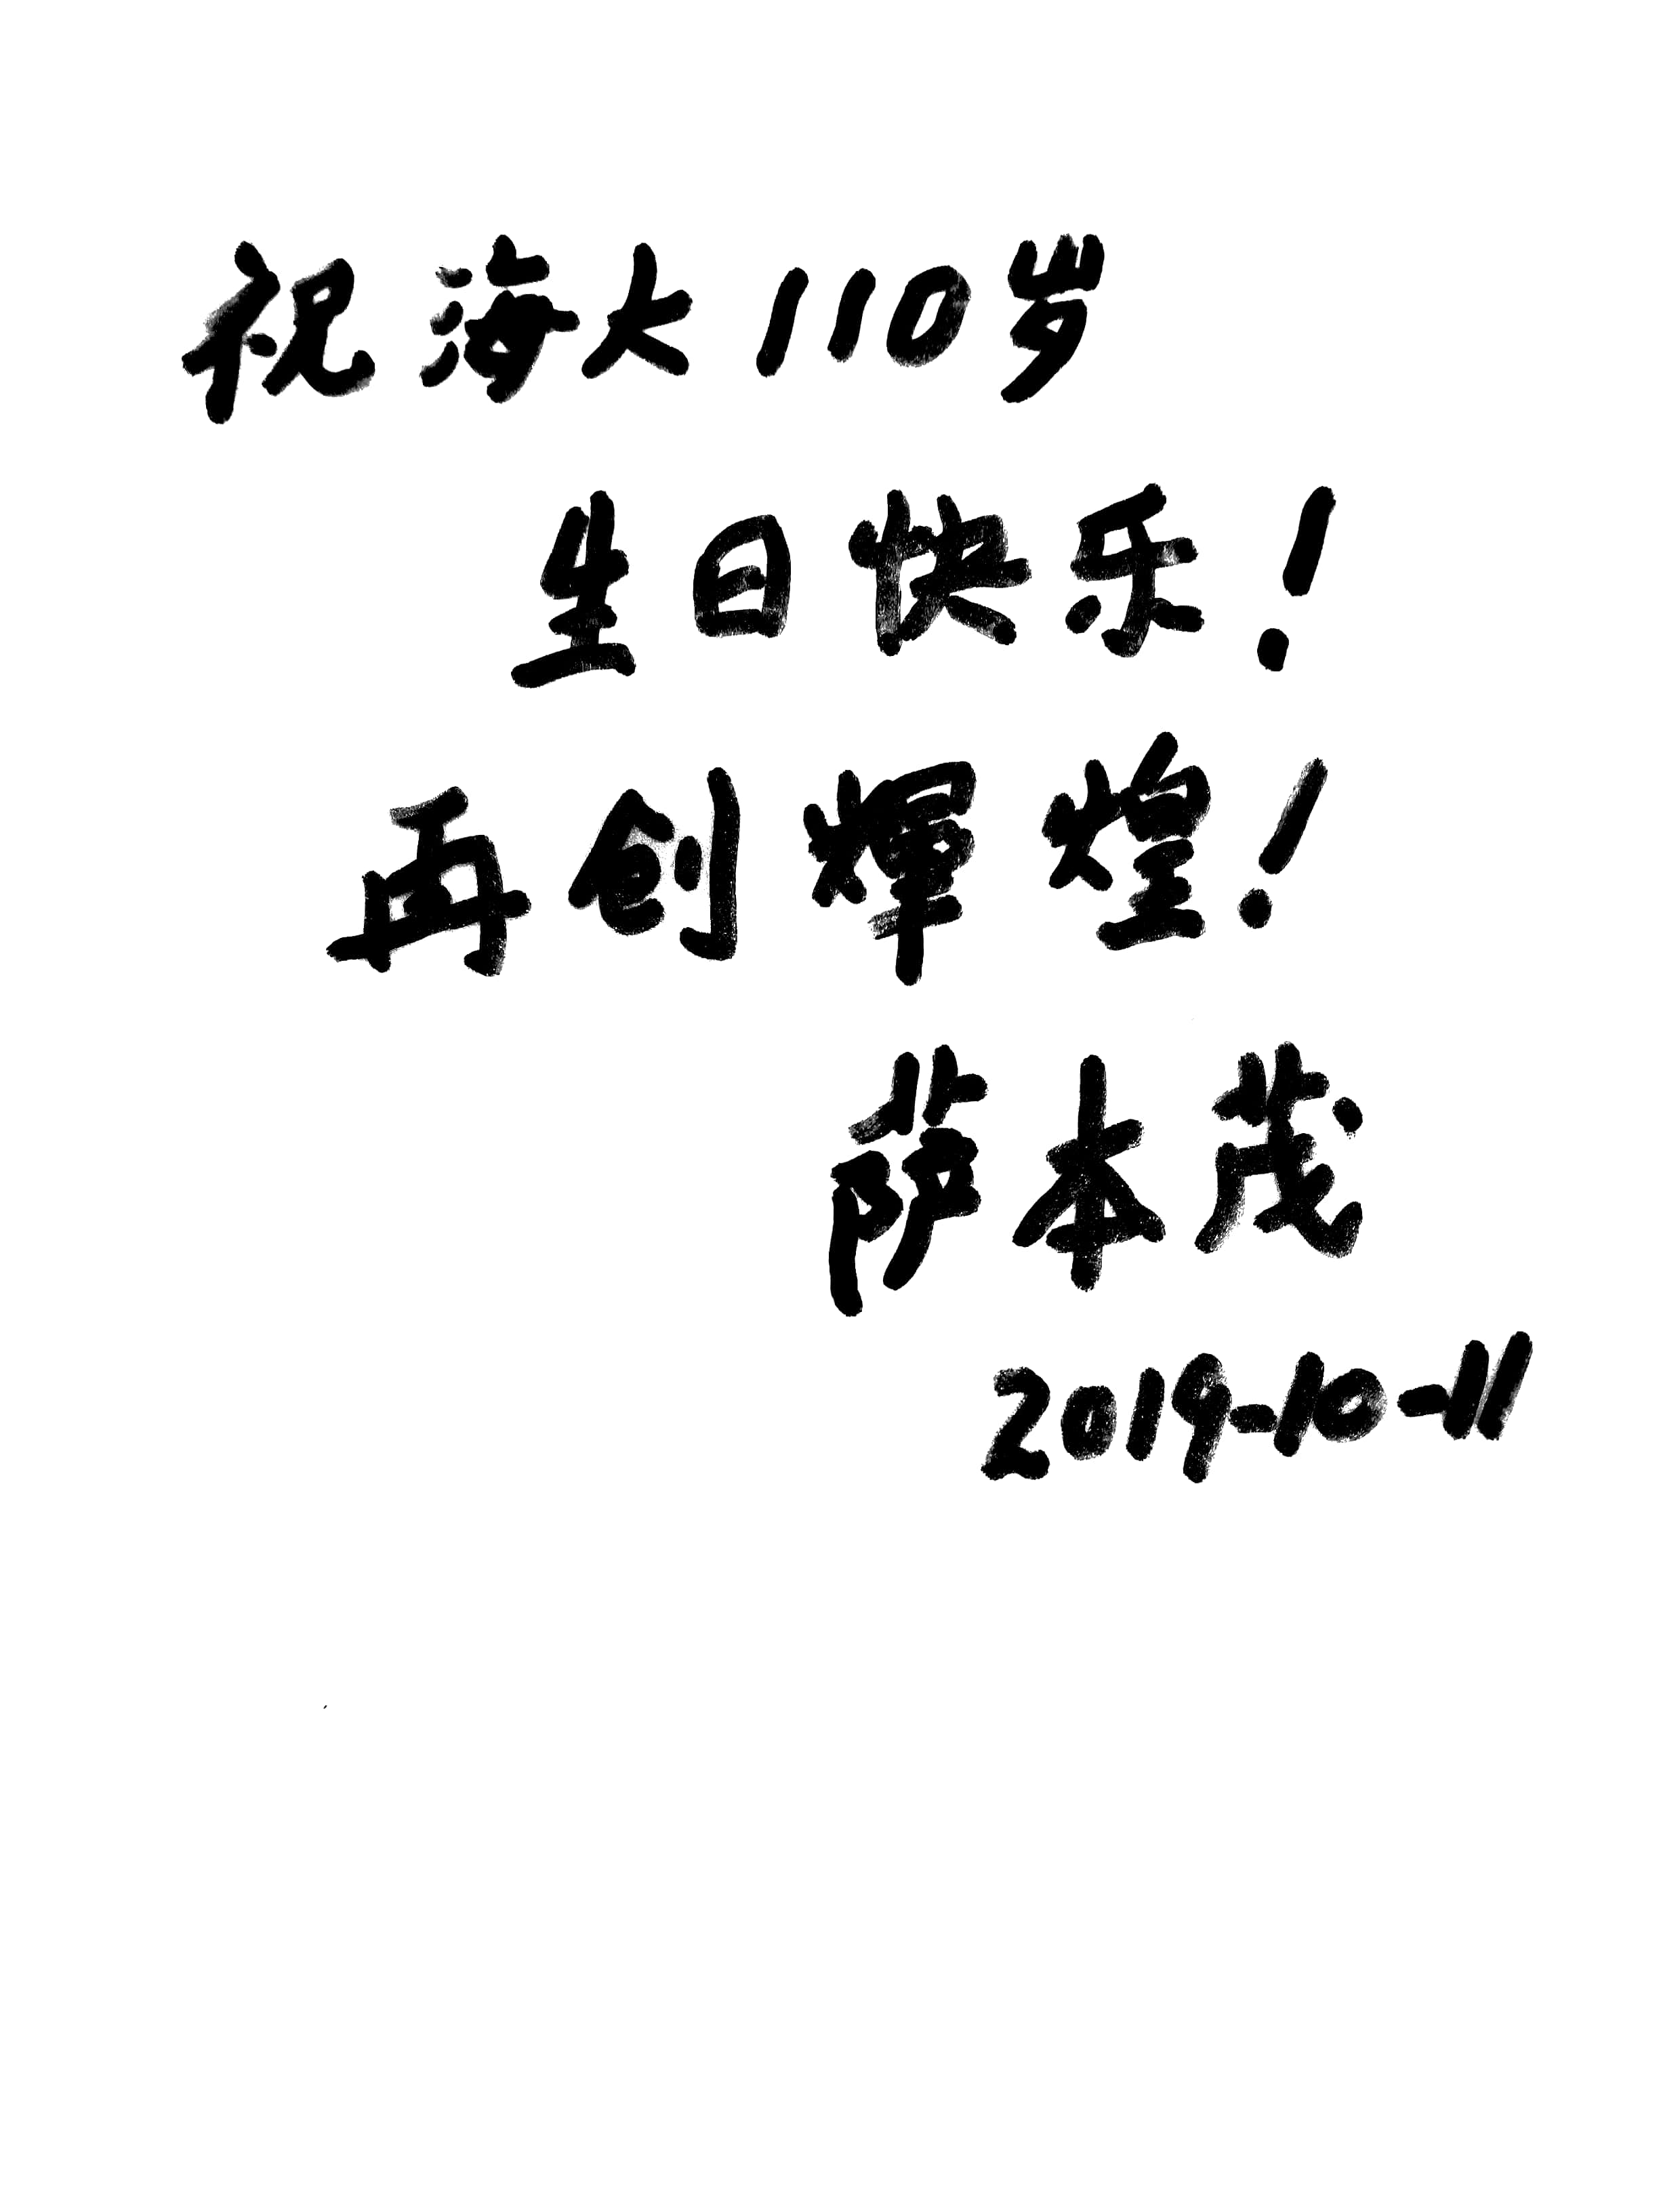 祝海大110岁
生日快乐！
再创輝煌！
萨本茂
2019-10-11